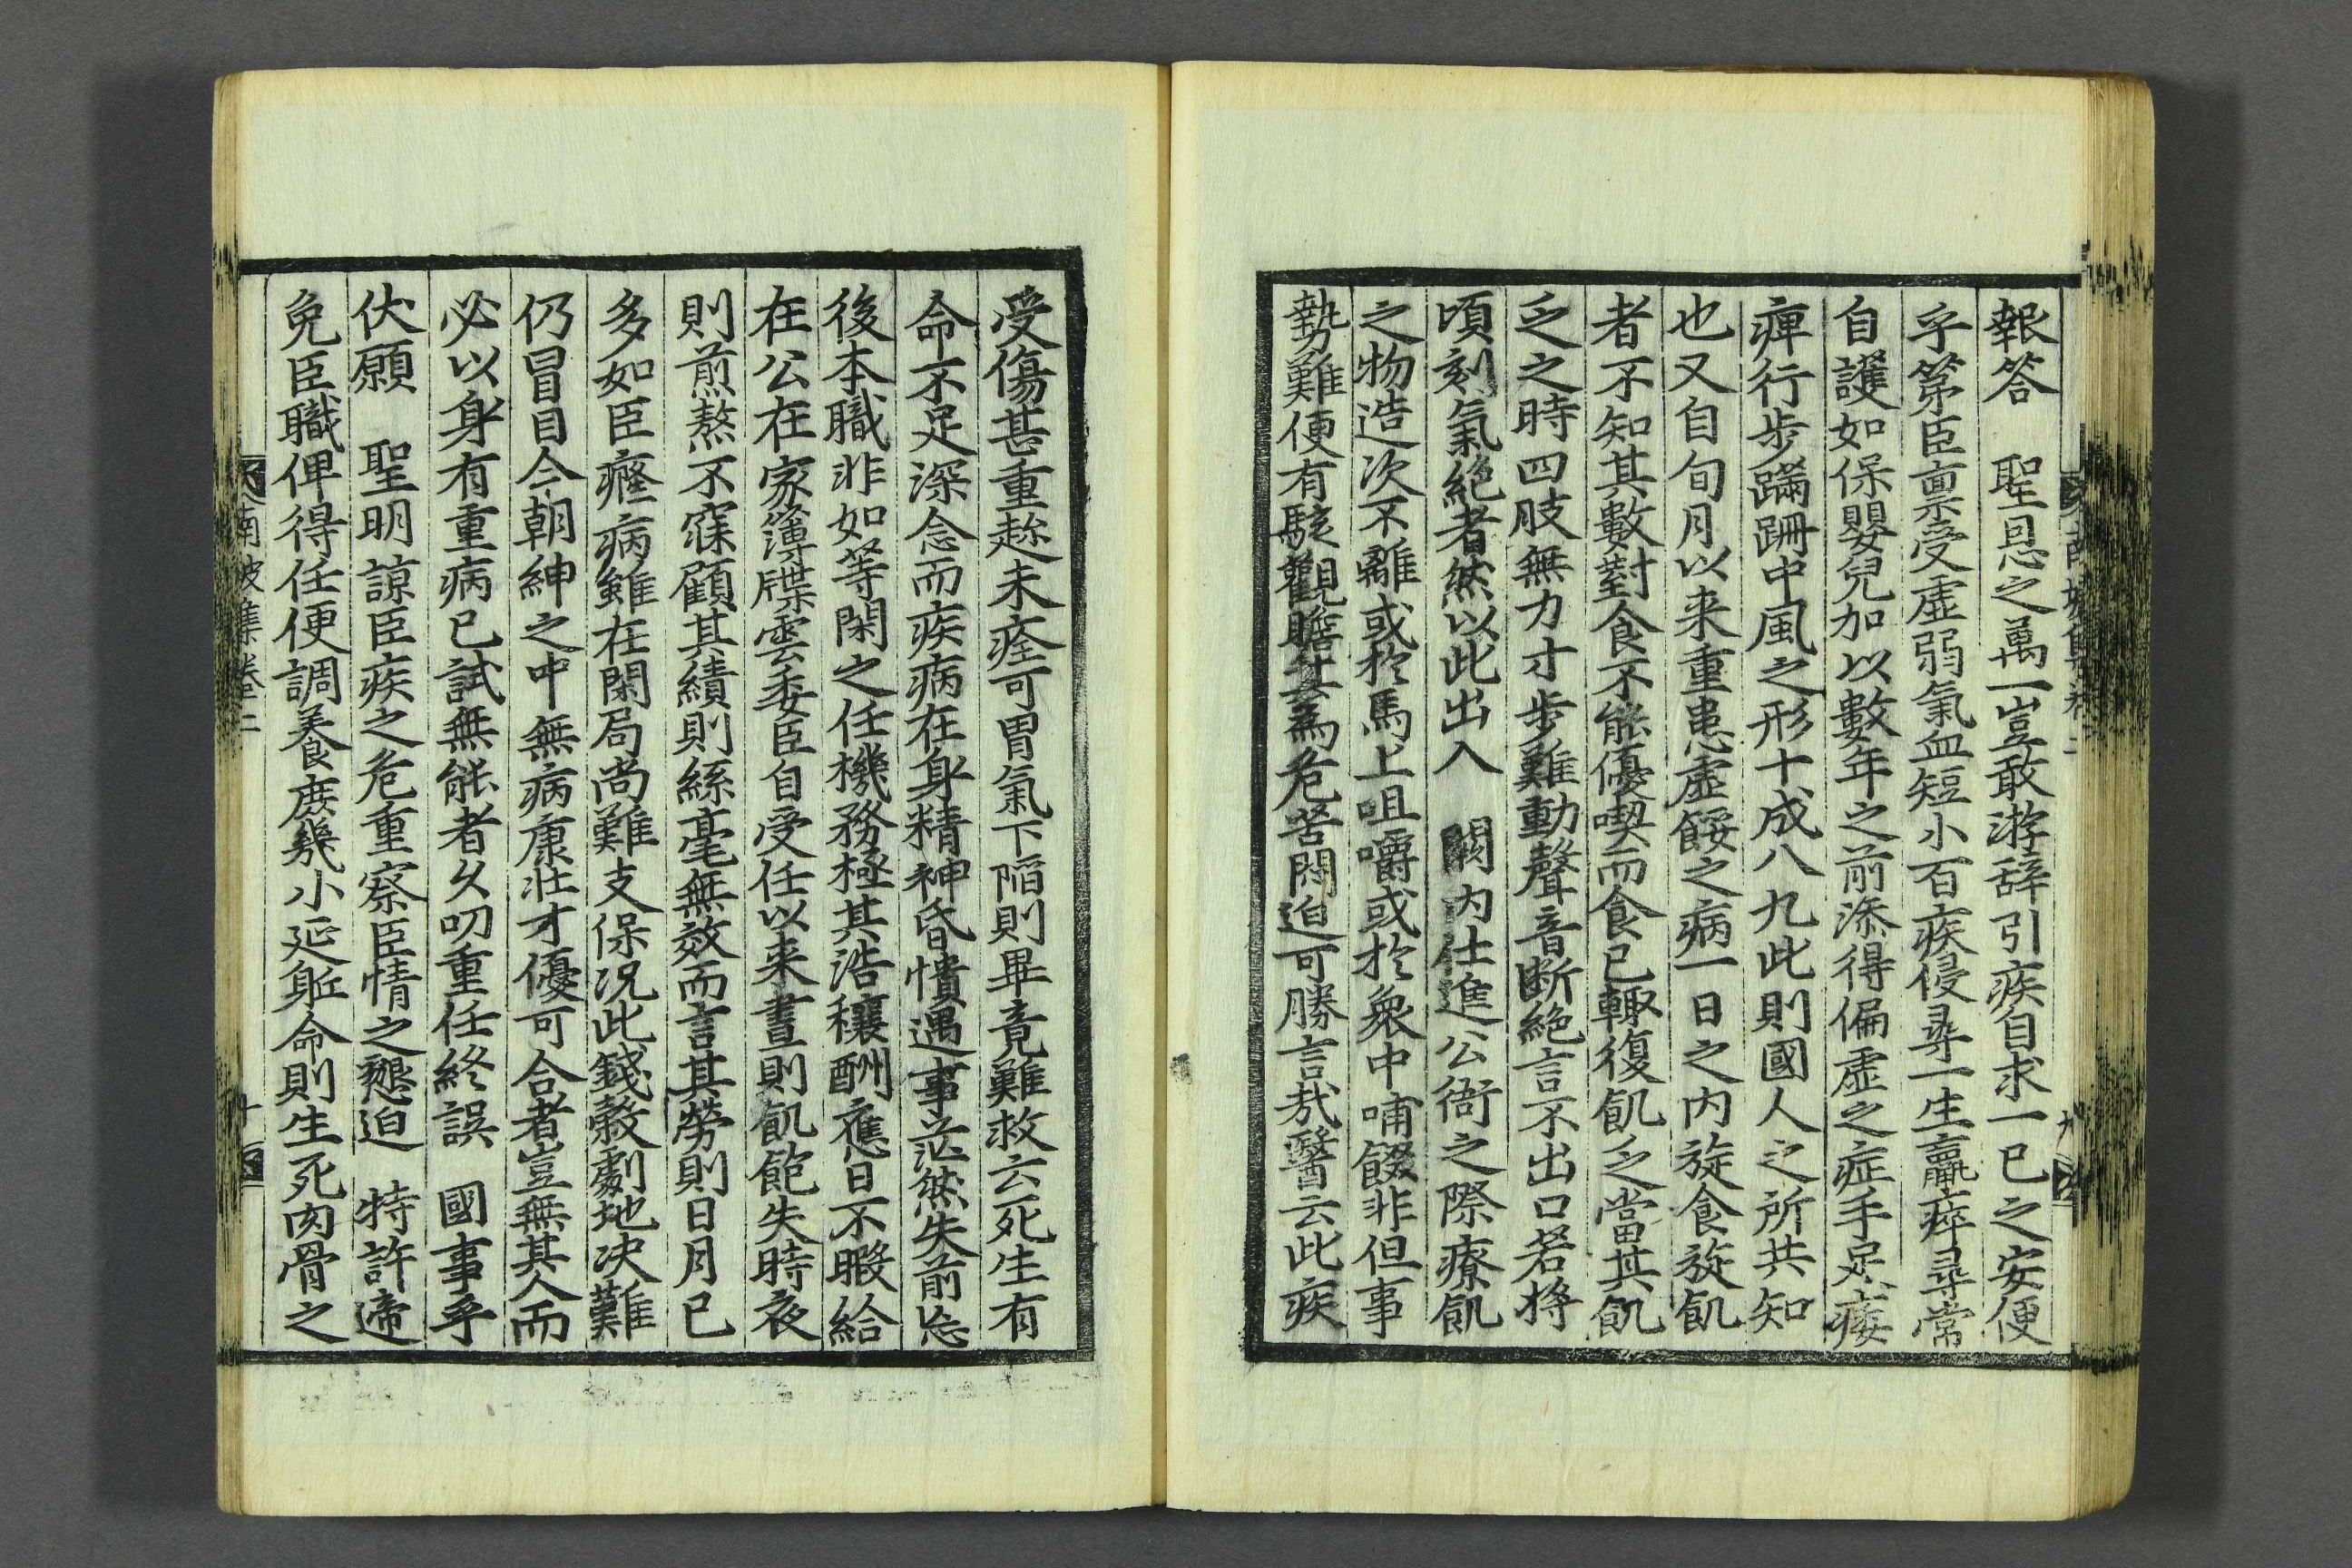 報答 聖恩之萬一豈敢游辞引疾自求一已之安便
乎第臣禀受虛弱氣血短小百疾侵尋一生羸瘁尋常
自護如保嬰兒加以數年之前添得偏虛之症手足痿
痺行步蹣跚中風之形十成八九此則國人之所共知
也又自旬月以来重患虛餒之病一日之内旋食旋飢
者不知其數對食不能優喫而食已輙復飢乏當其飢
乏之時四肢無力寸步難動聲音断絶言不出口若将
頃刻氣絶者然以此出入 闕内仕進公衙之際療飢
之物造次不離或於馬上咀嚼或於衆中哺餟非但事
勢難便有駭觀瞻其爲危苦悶迫可勝言哉醫云此疾
受傷甚重趁未痊可胃氣下陷則畢竟難救云死生有
命不足深念而疾病在身精神昏憒遇事茫然失前忘
後本職非如等閑之任機務極其浩穰酬應日不暇給
在公在家簿牒雲委臣自受任以来晝則飢飽失時夜
則煎熬不寐顧其績則絲毫無效而言其勞則日月已
多如臣癃病雖在閑局尚難支保况此錢穀劇地决難
仍冒目今朝紳之中無病康壯才優可合者豈無其人而
必以身有重病已試無能者久叨重任終誤 國事乎
伏願 聖明諒臣疾之危重察臣情之懇迫 特許遆
免臣職俾得任便調養庶幾小延躯命則生死肉骨之
南坡集卷二